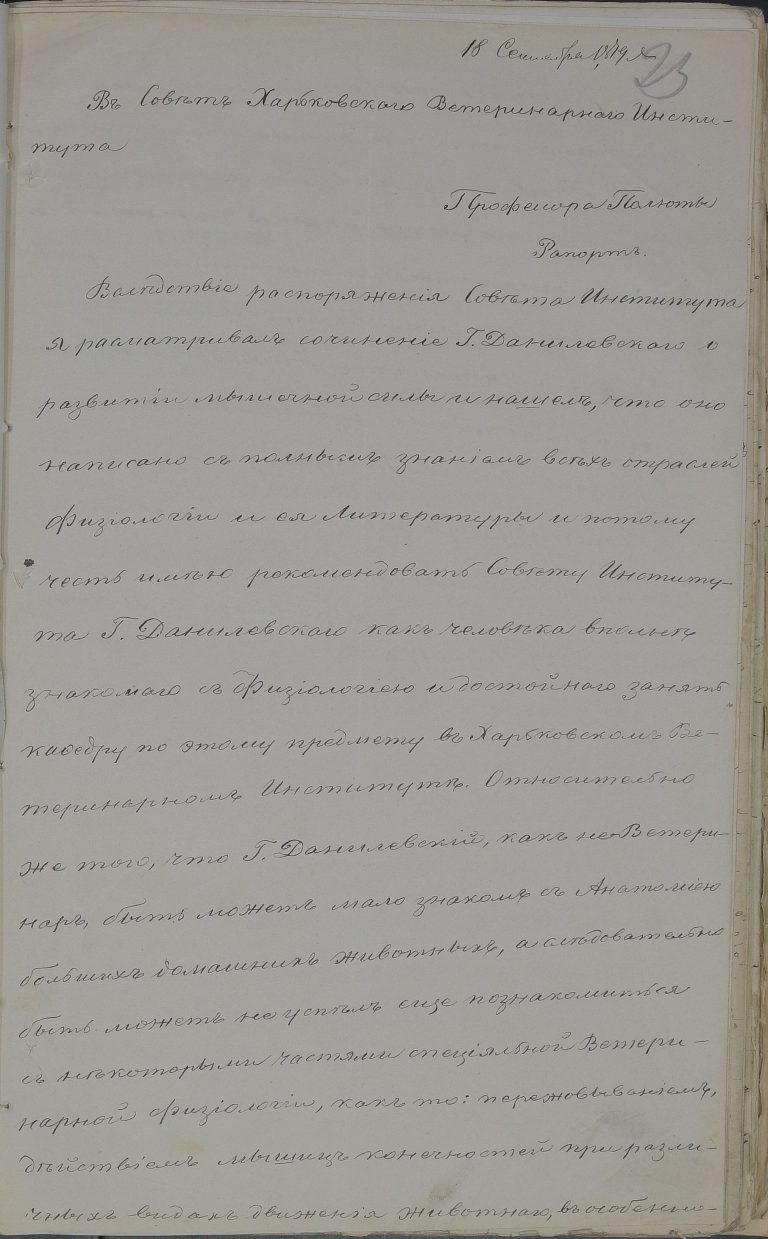 18 Сентября 1879 г.
23
Въ Совѣтъ Харьковскаго Ветеринарнаго Инсти-
тута
Профессора Полюты
Рапортъ.
Вслѣдствіе распоряженія Совѣта Института
я расматривалъ сочиненіе Г. Данилевскаго о
развитіи мышечной силы и нашелъ, что оно
написано съ полнымъ знаніемъ всѣхъ отраслей
Физіологіи и ея Литературы и потому
честь имѣю рекомендовать Совѣту Институ-
та Г. Данилевскаго какъ человѣка вполнѣ
знакомаго съ Физіологіею и достойнаго занять
каѳедру по этому предмету въ Харьковскомъ Ве-
теринарномъ Институтѣ. Относительно
же того, что Г. Данилевскій, какъ не Ветери-
наръ, быть можетъ мало знакомъ съ Анатоміею
большихъ домашнихъ животныхъ, а слѣдовательно
быть можетъ не успѣлъ еще познакомиться
съ нѣкоторыми частями спеціяльной Ветери-
нарной Физіологіи, какъ то: пережовываніемъ,
дѣйствіемъ мышицъ конечностей при разли-
чныхъ видахъ движенія животнаго, въ особенно-